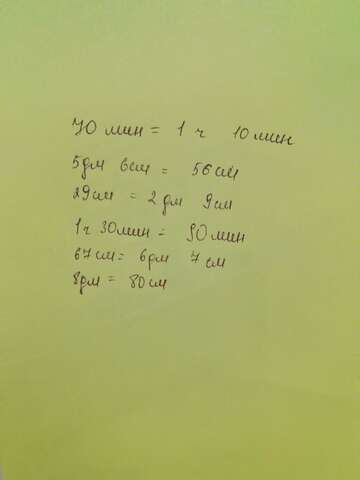 70 мин = 1 ч 10 мин
5дм 6см = 56см
29см = 2 дм 9см
1ч 30мин = 90мин
67см = 6дм 7 см
8дм = 80см